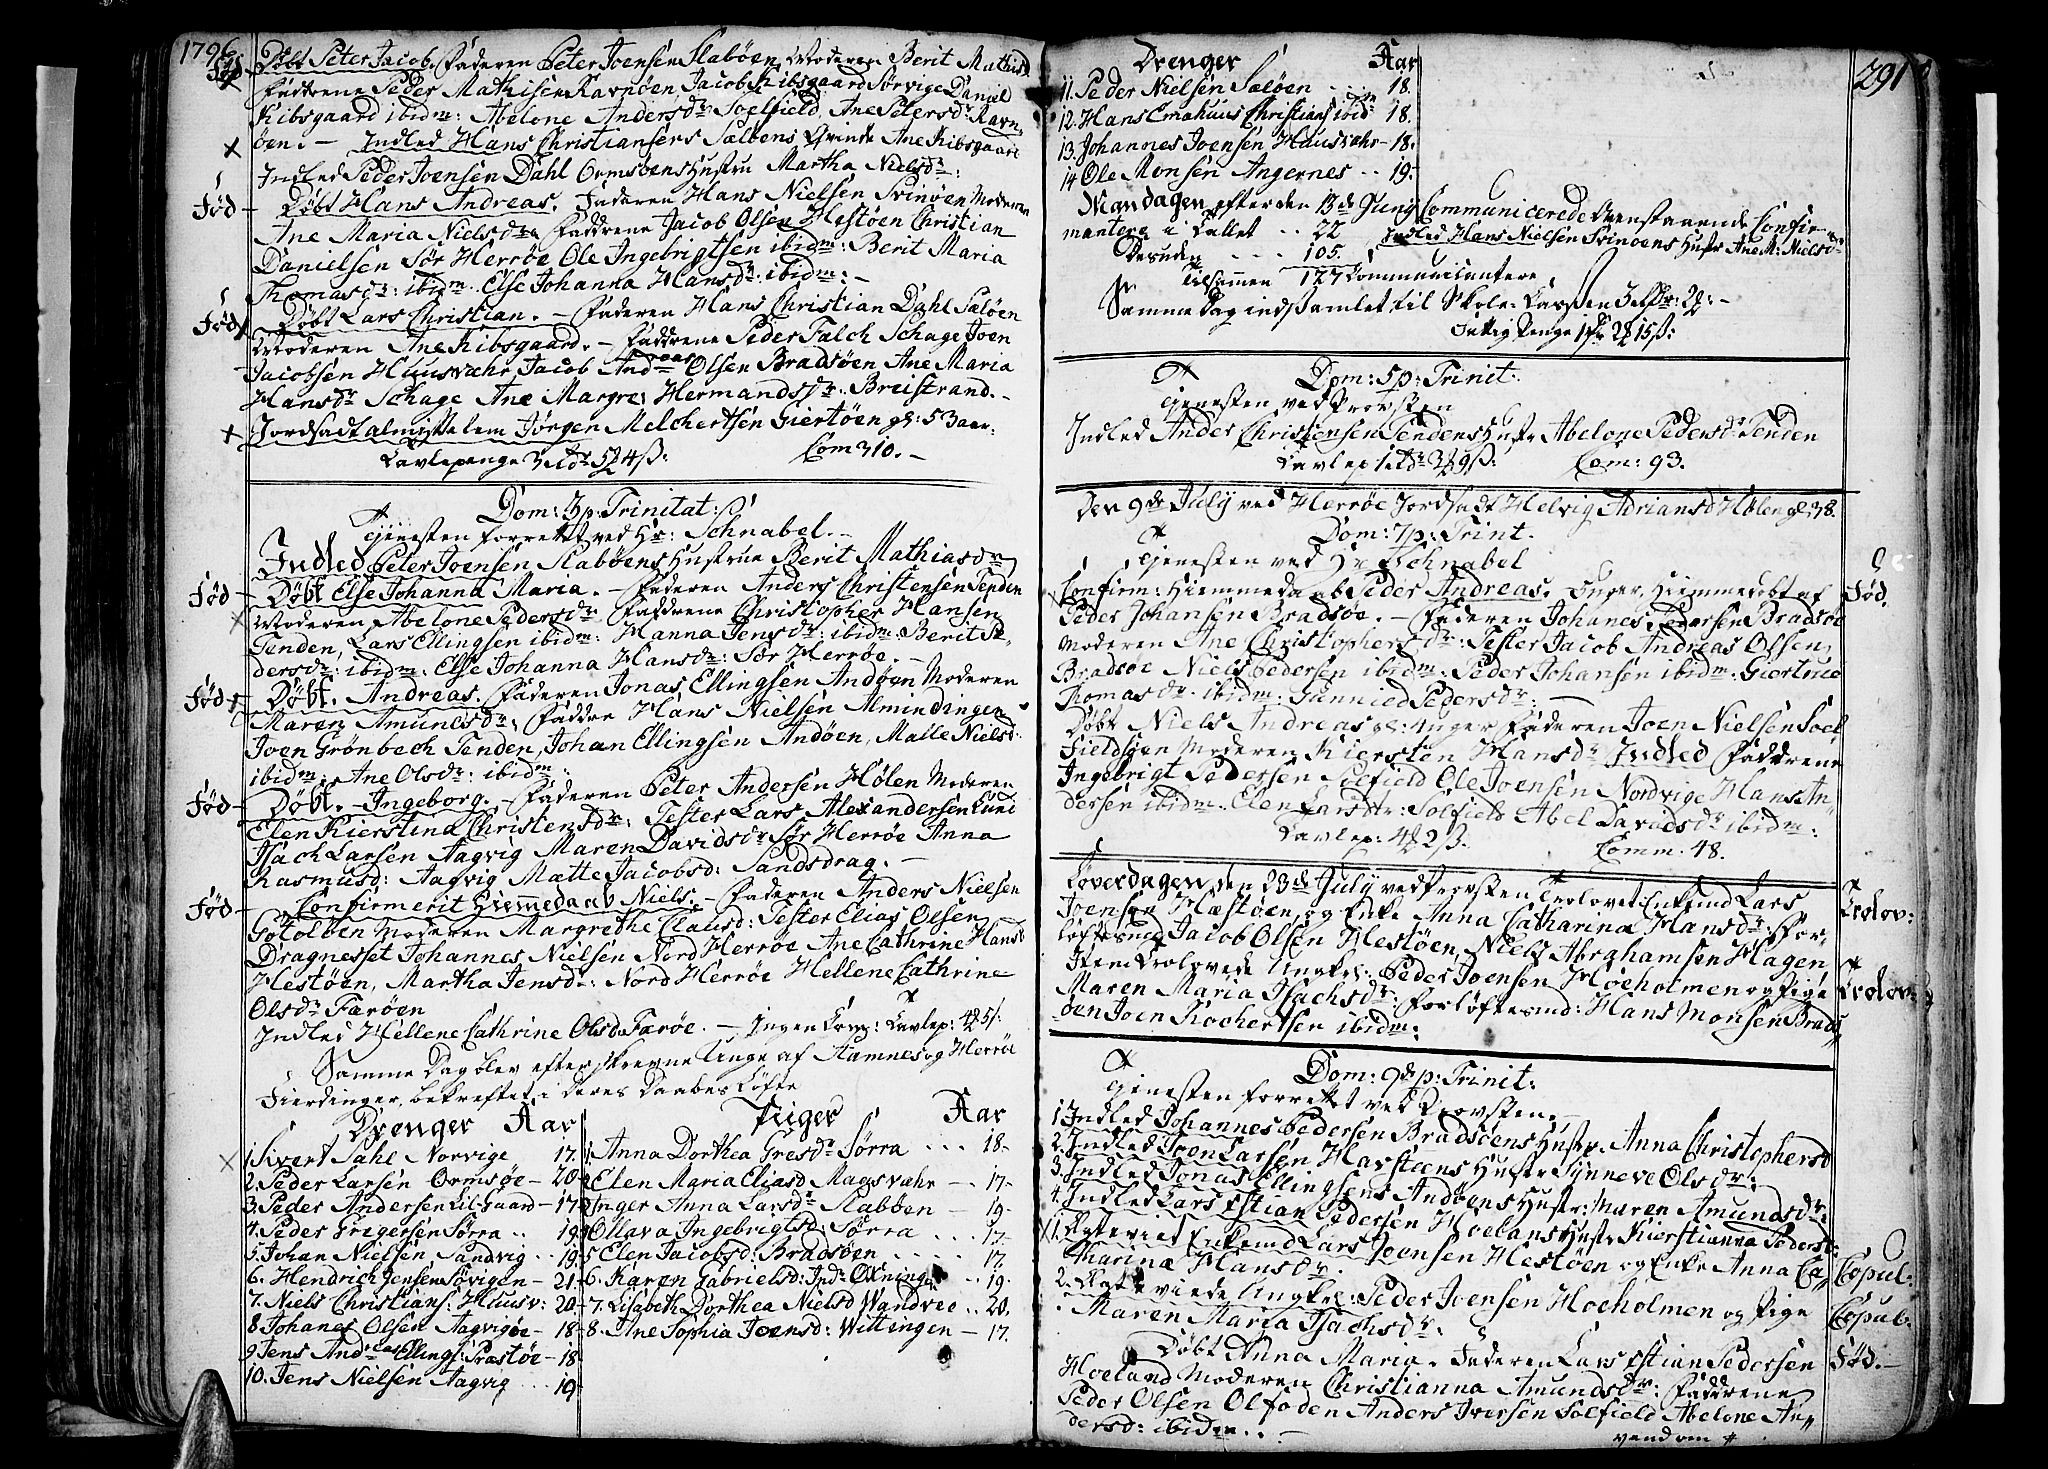 1796
Døbt Peter Jacob. Faderen Peter Joensen Slabøen Moderen Berit Mathisdr
Faddrene Peder Mathisen Ravnøen Jacob Kibsgaard Sørvige Daniel
Kibsgaard ibidm: Abelone Andersdr Soelfield, Ane Petersdr Ravn
øen. – Indled Hans Christiansens Sæløens Qvinde Ane Kibsgaard
Indled Peder Joensen Dahl Ormsøens Hustru Martha Nielsdr:
Fød – Døbt Hans Andreas. Faderen Hans Nielsen Svinøen Moderen
Ane Maria Nielsdr Faddrene Jacob Olsen Hestøen Christian
Danielsen Sør Herrøe Ole Ingebrigtsen ibidm: Berit Maria
Thomasdr: ibidm Else Johanna Hansdr: ibidm: –
Fød Døbt Lars Christian. – Faderen Hans Christian Dahl Sæløen
Moderen Ane Kibsgaard. – Faddrene Peder Falch Schage Joen
Jacobsen Huusvahr, Jacob Andreas Olsen Bradsøen Ane Maria
Hansdr Schage Ane Margre: Hermandsdr. Breistrand. –
Jordfæst almisse lem Jørgen Melchertsen Giertøen gl: 53 aar.
Tavlepenge 3 rdr 5 ℔ 4 ß: Com 310. –
Dom: 3 p: Trinitat:
Tjenesten forrettet ved Hr: Schnabel. –
Indled Peter Joensen Slabøens Hustrue Berit Mathiasdr
Fød – Døbt Else Johanna Maria. – Faderen Anders Christensen Tenden
Moderen Abelone Pedersdr Faddrene Christopher Hansen
Tenden, Lars Ellingsen ibidm: Hanna Jensdr: ibidm Berit Pe-
dersdr: ibidm. Else Johanna Hansdr: Sør Herrøe. –
Fød Døbt. Andreas. Faderen Jonas Ellingsen Andøen Moderen
Maren Amundsdr, Faddre Hans Nielsen Almindingen
Joen Grønbech Tenden, Johan Ellingsen Andøen, Malle Nielsd:
ibidm: Ane Olsdr: ibidm:
Fød – Døbt. – Ingeborg. – Faderen Peter Andersen Hølen Moderen
Elen Kierstina Christensdr: Tester Lars Alexandersen Lund
Isach Larsen Aagvig Maren Davidsdr Sør Herrøe Anna
Rasmusd: Aagvig Mætte Jacobsd: Sandsdrag. –
Fød – Confirmerit Hiemedaab Niels. – Faderen Anders Nielsen
Gotolden Moderen Margrethe Clausd: Tester Elias Olsen
Dragnesset Johannes Nielsen Nord Herrøe Ane Cathrine Hansd
Hestøen, Martha Jensdr: Nord Herrøe Hellene Cathrine
Olsdr Færøen
Indled Hellene Cathrine Olsd Færøe. – Ingen Com: Tavlep: 4 ℔ 5 ß
Samme Dag blev efterskrevne Unge af Aamnes og Herrøe
Fierdinger, bekreftet i deres Daabes Løfte
Drenger Aar Piger Aar
1. Sivert Sahl Norvige 17. 1. Anna Dorthea Gresdr Sørra . . . 18.
2. Peder Larsen Ormsøe – 20 2 Elen Maria Eliasd Magsvahr – 17.
3. Peder Andersen Lil-Gaard – 17 3 Inger Anna Larsdr Slabøen – 19.
4. Peder Gregersen Sørra . . 19 4 Ollava Ingebrigtsd: Sørra . . . 17.
5. Johan Nielsen Sandvig . . 19. 5 Elen Jacobsd: Bradsøen . . . . . 17.
6. Hendrich Jensen Søvigen – 21. 6. Karen Gabrielsd: Indr: Okninge . . 19.
7. Niels Christians: Huusv: 20 – 7. Lisabeth Dorthea Nielsd Wandved . . 20.
8. Johanes Olsen Aagvigøe – 18 – 8. Ane Sophia Joensd: Wittingen – 17.
9 Jens Andreas Ellings: Præstøe – 18
10. Jens Nielsen Aagvig . . . 19.
291
Drenger Aar
11. Peder Nielsen Sæløen . . . 18.
12. Hans Emahuus Christians ibidm 18.
13. Johannes Joensen Huusvahr – 18.
14 Ole Monsen Angernes . . 19.
Mandagen efter den 13de Juny Communicerede Ovenstaaende Confir-
mantere i Tallet . . 22 Indled Hans Nielsen Svinøens Hustr Ane M: Nielsdr
Desuden . . . 105.
Tilsamen 127 Communicantere
Samme Dag indsamlet til Skole-Cassen
Dom: 5 p: Trinit:
Tjenesten ved Provsten
Indled Anders Christensen Tendens Hustr Abelone Pedersdr Tenden
Tavlep 1 rdr 3 ℔ 9 ß: Com: 93.
Den 9de July ved Herrøe Jordfæst Helvig Adriansd Hølen gl 38.
Dom: 7 p: Trint.
Tjenesten ved Hr Schnabel
Confirm: Hiemmedaab Peder Andreas. Hiemmedøbt af Fød.
Peder Johansen Bradsøe. – Faderen Johanes Pedersen Bradsøe
Moderen Ane Christophersdr: Tester Jacob Andreas Olsen,
Bradsøe Niels Pedersen ibidm: Peder Johansen ibidm: Giertrue
Thomasdr. ibidm. Gunnied Pedersdr: –
Døbt Niels Andreas Faderen Joen Nielsen Soel
Fieldsøen Moderen Kiersten Hansdr Indled Faddrene
Ingebrigt Pedersen Soelfield Ole Joensen Nordvige Hans An
dersen ibidm. Elen Larsdr: Solfield Abel Davidsdr ibidm:
Tavlep: 4 ℔ 2 ß. Comm: 48.
Løverdagen den 23de July ved Provsten Trolovet Enkemd Lars Trolov:
Joensen Hæstøen, og Enke Anna Catharina Hansdr: For-
løftesmd Jacob Olsen Hestøen, Niels Abrahamsen Hagen
Item Trolovede Ungkrl: Peder Joensen Høeholmen og Pige Trolov:
Maren Maria Isachsdr: Forløftesmd: Hans Monsen Brads
øen Joen Kochertsen ibidm:
Dom: 9de p: Trinit:
Tjenesten forrettet ved Provsten. –
1. Indled Johannes Pedersen Bradsøens Hustr. Anna Christophersd
2. Indled Joen Larsen Havsteens Hustr Synneve Olsdr:
3. Indled Jonas Ellingsens Andøens Hustr: Maren Amundsdr:
4. Indled Lars Estian Pedersen Hoelans Hustr Kierstianna Pedersd:
1. Egteviet Enkemd Lars Joensen Hestøen og Enke Anna Ca Copul.
tharina Hansdr.
2. Egteviede Ungkrl: Peder Joensen Hoeholmen og Pige Copul.
Maren Maria Isachsdr:
Døbt Anna Maria. Faderen Lars Estian Pedersen Fød. –
Hoeland Moderen Christianna Amundsdr: Faddrene
Peder Olsen Olfoden Anders Iversen Solfield Abelone An
dersd: ibidm. . –
vend om